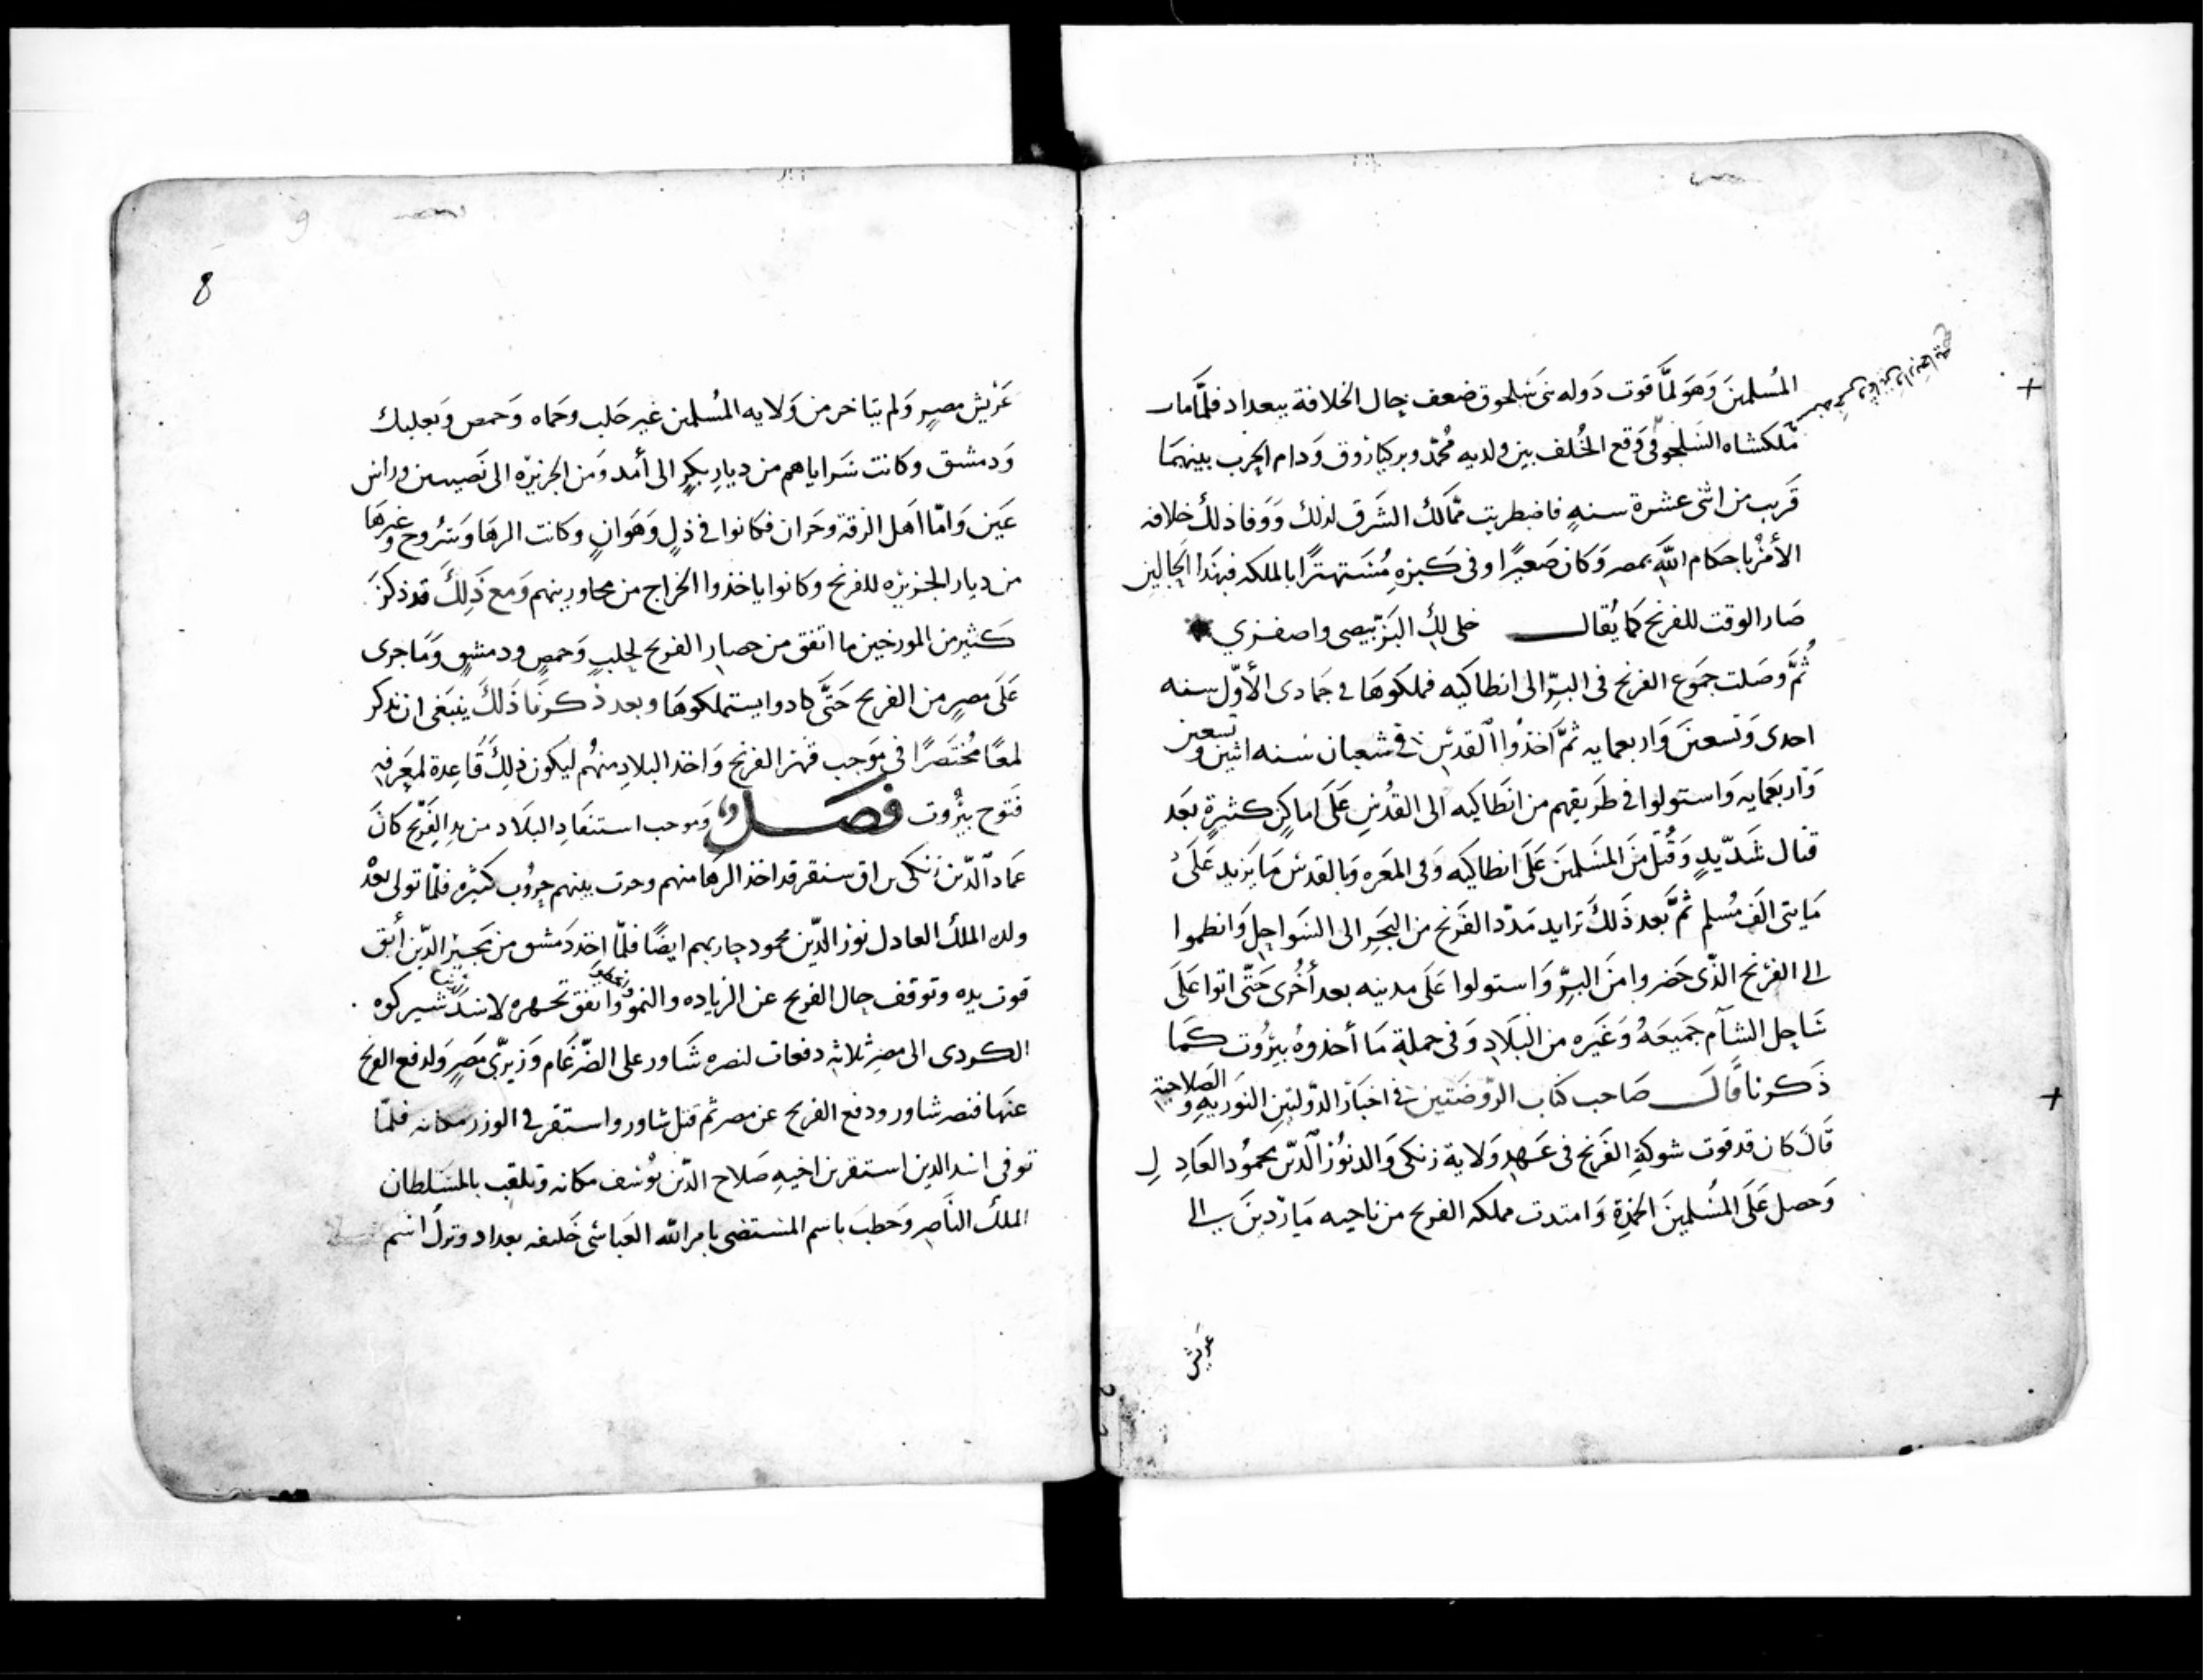 المُسلمينَ وَهوَ لمَّا قوت دَوله بنى سَلجوق ضعف حال الخلافة ببغداد فلمَّا مات
سنه خمس وثمانين واربعمايه
مَلكشاه السَلجوقى وَقع الخُلف بين ولديه مُحمّد وبركيازوق وَدام الحرب بينهمَا
قَريب من اثنى عشرة سنهٍ فاضطربت ممَالك الشَرق لذلك وَوَفا ذلك خلافه
الأمرْ باحكام اللهِ بمصر وَكان صَغيرًا وفى كَبره مُستهترًا بالملكه فبهَذا الحَالين
صَار الوقت للفرنج كمَا يُقال خلى لكِ البَرّ بيضى واصفرى
ثُمَّ وصَلت جمَوع الفرنج فى البرِّ الى انطاكيه فملكوهَا فى جَمادى الأوّل سنه
احدى وَتسعينَ وَاربعمايه ثمَّ اخذُوا القدسَ فى شعبان سنه اثنين وتسعين
وَاربعَمايه وَاستولوا فى طَريقهم من انطَاكيه الى القدُس عَلَى اماكِن كثيرةٍ بعَد
قتال شَدّيدٍ وَقُتل منَ المسَلمينَ عَلَى انطاكيَه وَفى المعَره وَبالقدس مَا يَزيد عَلَى
مَايتى الَف مُسلم ثمَّ بعد ذَلكَ تزايد مَدّد الفَرَنج من البَحرِ الى السَواحِل وَانطموا
الى الفرَنج الذّى حَضروا منَ البرِّ وَاستولوا عَلَى مدينه بعد أخُرى حَتّى اتوا عَلَى
سَاحِل الشآم جَميعَهُ وَغَيَره من البَلَادِ وَفى جملةِ مَا أخذوهُ بيرُوت كَمَا
ذَكرنا قَالَ صَاحب كتَاب الرّوضَتين فى اخبَار الدّولتيَن النوَريهِ وَالصلاحية
قَالَ كَان قد قوت شوكَةِ الفَرنج فى عَهدِ وَلاية زنكى وَالد نوُر الدّين محموُد العَادِ لِ
وَحصل عَلَى المُسْلمينَ الخمدِة وَامتدت مملكه الفرنج من ناحيه مَارْدينَ الى
عريش
8
عَريْش مصرٍ وَلم يتاخر من وَلايه المُسلمين غير حَلب وحَماه وَحمص وَبعلبك
وَدمشق وكانت سَراياهم من ديارِ بكرٍ الى أمد وَمن الجزيرْة الى نَصيبين وراس
عَين وَامّا اهَل الرقة وحَران فكانوا فى ذلٍ وَهَوانٍ وكانت الرهَا وَسَروُج وغيرهَا
من ديار الجزيرْه للفرنج وكانوا ياخذوا الخراج من مجاورينهم وَمع ذَلِكَ قد ذكرَ
كَثير من المورخين ما اتفق من حصَار الفرنج لحلبٍ وَحمصٍ ودمشقٍ وَمَا جرى
عَلَى مصرٍ من الفرنج حَتَّى كادوا يستملكوهَا وبعد ذكرنَا ذَلكَ ينبَغى ان نذكر
لمعًا مُختَصَرًا فى مَوَجب قهَر الفرنج وَاخذ البلادِ منهُم ليكون ذلِكَ قَاعِدة لمعَرفه
فَتوح بيْرُوت فَصَــل وَموجب استنقَاذ البلَاد من يدِ الفَرَنج كَانَ
عَماد الدّين زَنكى بن اق سنقر قد اخذ الرهَا منهم وجرت بينهم حروُب كثيره فلمّا تولى بعدْ
ولده الملكُ العادل نورْ الدّين محمود حاربهم ايضًا فلمّا اخذ دَمشق من مجَير الدّين أبَق
قوت يده وتوقف حال الفرنج عن الزياده والنمو واتفق تجهيزه لاسد الدين شيركوه
الكردى الى مصرِ ثلاثه دفعات لنصره شَاور على الضّرغَام وَزيرّى مَصٍر وَلدفع الفرنج
عنَها فنصر شاور ودفع الفرنج عن مصر ثم قتل شاور واستقر فى الوزر مكانه فلمّا
توفى اسد الدين استقر بن اخيهِ صَلاح الدّين يوُسف مكانه وتلقب بالسَلطان
الملكُ النَاصرِ وَخطبَ باسم المستضى بامر الله العَباسى خَليفه بغداد وترك اسَم